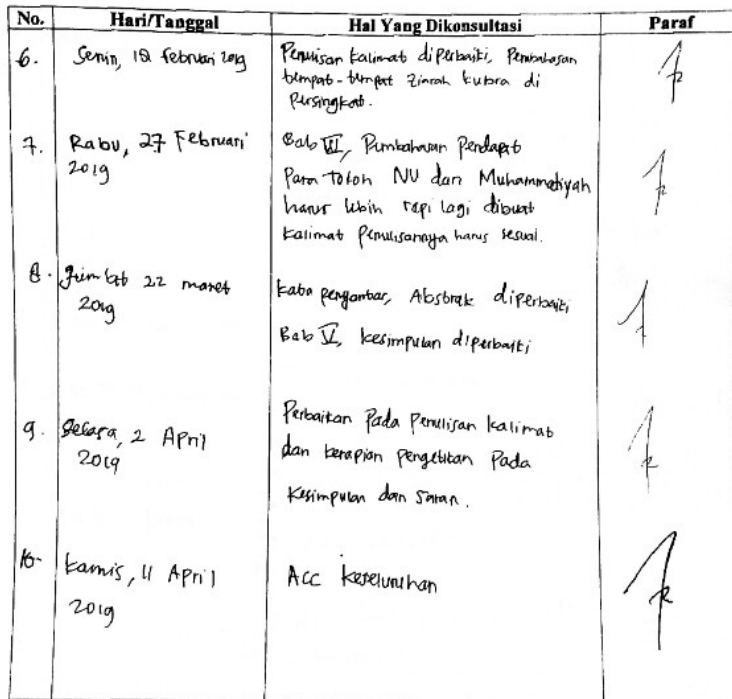 No. Hari/Tanggal Hal Yang Dikonsultasi Paraf
6. Senin, 18 februari 2019 Penulisan kalimat diperbaiki, Pembahasan
tempat-tempat Ziarah kubra di
Persingkat.
7. Rabu, 27 Februari Bab Pembahasan Pendapat
2019 Para tokoh NU dan Muhammadiyah
harus lebih rapi lagi dibuat
kalimat Penulisannya harus sesuai.
8. Jum'at 22 maret kata pengantar, Abstrak diperbaiki
2019 Bab kesimpulan diperbaiki
9. Selasa, 2 April Perbaikan Pada Penulisan kalimat
2019 dan kerapian pengetikan Pada
Kesimpulan dan Saran.
10. kamis, 11 April Acc keseluruhan
2019